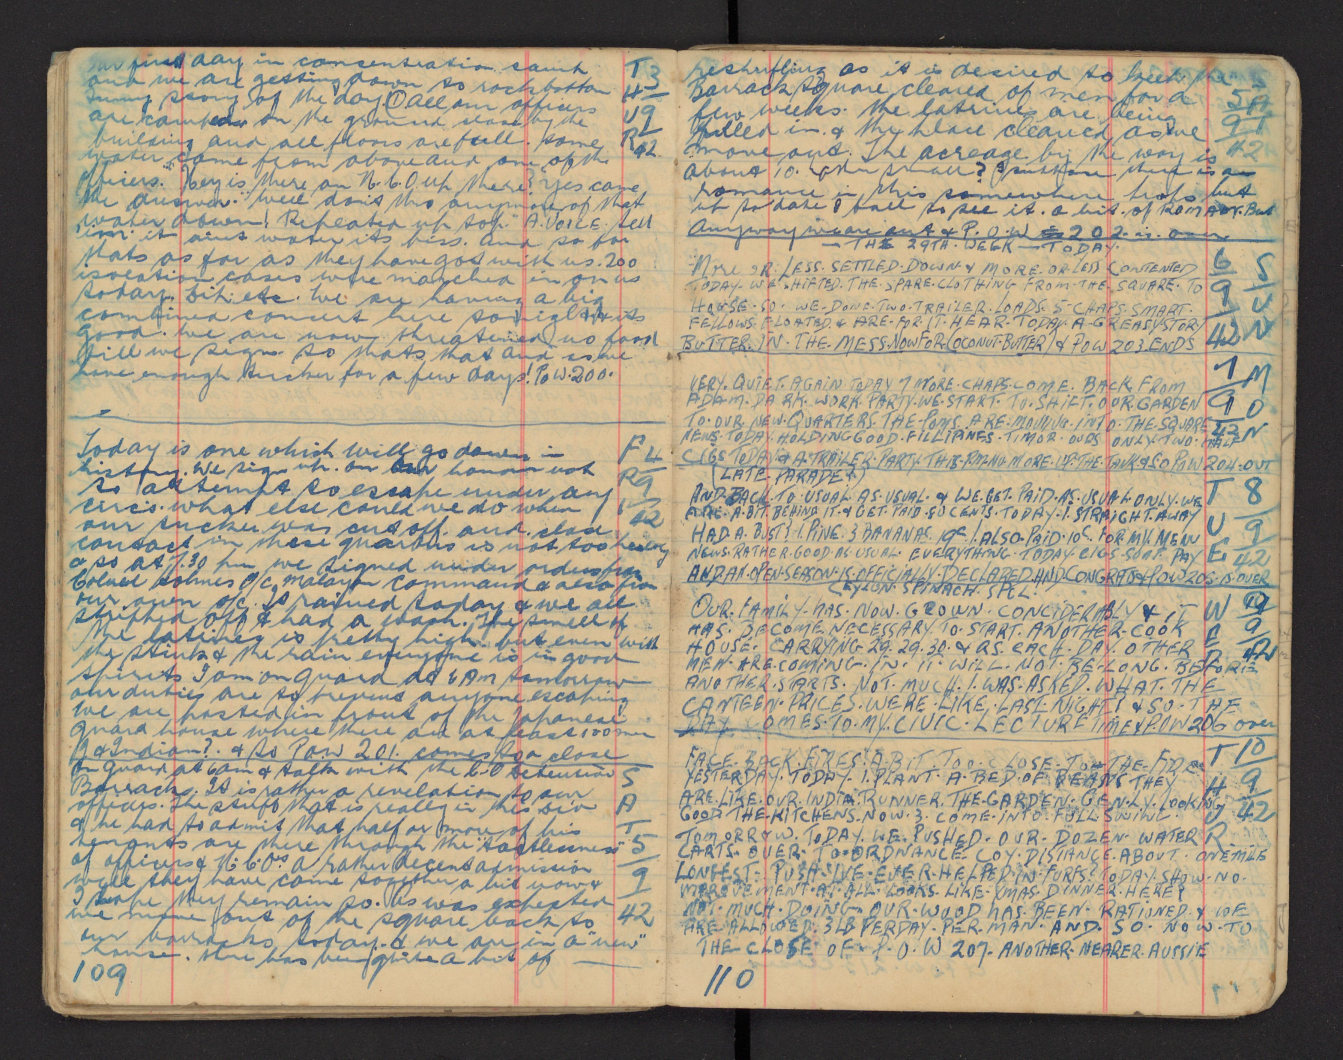 our first day in concentration camp
and we are getting down to rock bottom
funny story of the day all our officers
are camped on the ground near by the
building and all floors are full. some
water came from above and one of the
officers. "Hey is there an N.C.O up there? Yes came
the answer. "well don't tho anymore of that
water down"! Repeated up top "A. VOICE. tell
im. it aint water its piss. and so far
thats as far as they have got with us. 200
isolation cases were marched in on us
today. bih. etc. We are having a big
combined concert here tonight its
good. We are now threatened no food
till we sign. so thats that and is we
have enough tucker for a few days! POW. 200.
T 3
H
U 9
R 42
Today is one which will go down in
history. We sign up. on our honour not
to attempt to escape under any
circs. what else could we do when
our tucker was cut off and close
contact in these quarters is not too healthy
& so at 7.30 pm we signed under orders from
Colonel Holmes o/c Malayan command & also from
our own o/c. It rained today & we all
stripped off & had a wash. The smell of
the latrines is pretty high. but even with
the stink & the rain everyone is in good
spirits I am on guard at 6 AM tomorrow
our duties are to prevent anyone escaping
we are posted in front of the Japanese
guard house where there are at least 100
& Indian?. & so POW 201. comes to a close
F 4
R 9
I 42
On guard at 6am & talk with the C.O Detention
Barracks. It is rather a revelation to our
officers. The stuff that is really in the
& he had to admit that half or more of his
tenants are there through the tactlessness
of officers & N.C.Os a rather decent admission
well they have come together a bit now &
I hope they remain so. as was expected
we move out of the square back to
our barracks today. & we are in a "new"
house. There has been quite a bit of
S
A
T
5
9
42
109
reshuffling as it is desired to keep the
Barrack Square cleared of men for a
few weeks. the latrines are being
filled in. & the place cleared as we
move out. The acreage by the way is
about 10. rather small? I suppose there is a
romance in this somewhere but
up to date I fail to see it. a bit of ROMANY. But
anyway we are out & P.O.W 202 is over
— THE 29TH. WEEK — TODAY.
5
9
42
MORE OR LESS. SETTLED. DOWN. & MORE. OR LESS CONTENTED
TODAY. WE. SHIFTED. THE. SPARE. CLOTHING FROM. THE. SQUARE. TO
HOUSE. SO. WE. DONE. TWO. TRAILER. LOADS. 5 CHAPS. SMART.
FELLOWS. FLOATED & ARE. FOR IT. HEAR TODAY. A. GREASY STORY
BUTTER. IN. THE. MESS. NOW FOR (COCONUT. BUTTER) & POW 203 ENDS
6
9
42
S
U
N
VERY. QUIET. AGAIN TODAY 7 MORE. CHAPS. COME. BACK FROM
ADAM. PARK. WORK. PARTY. WE. START. TO. SHIFT. OUR. GARDEN
TO. OUR. NEW. QUARTERS. THE. POMS. ARE. MOVING. INTO. THE. SQUARE
NEWS. TODAY. HOLDING GOOD. FILLIPANES. TIMOR. OURS ONLY. TWO. MEALS
CIGS TODAY & A. TRAILER. PARTY. THIS. P.M. NO MORE. UP. THE. TANK & SO POW 204. OUT
(LATE PARADE)
7
9
42
M
O
N
AND. BACK. TO. USUAL. AS. USUAL. & WE. GET. PAID. AS. USUAL. ONLY. WE
ARE. A. BIT BEHIND. IT. & GET. PAID. 50 CENTS. TODAY. I STRAIGHT. AWAY
HAD. A. BUST: 1. PINE. 3 BANANAS. 19c I. ALSO. PAID. 10c FOR MY. MENU
NEWS. RATHER. GOOD. AS USUAL. EVERYTHING. TODAY. CIGS. SOAP. PAY
AND. AN. OPEN. SEASON. IS. OFFICIALLY DECLARED. AND. CONGRATS & POW 205 IS. OVER
(CEYLON. SPINACH. SPEL.
T
U
E
8
9
42
OUR. FAMILY. HAS. NOW. GROWN. CONCIDERABLY & IT
HAS. BECOME. NECESSARY. TO. START. ANOTHER. COOK
HOUSE. CARRYING. 29. 29. 30. & AS. EACH. DAY. OTHER
MEN. ARE. COMING. IN. IT. WILL. NOT. BE. LONG. BEFORE
ANOTHER. STARTS. NOT. MUCH. I. WAS. ASKED. WHAT. THE
CANTEEN. PRICES. WERE. LIKE. LAST NIGHT? & SO. THE
DAY COMES. TO. MY. CIVIC. LECTURE TIME & POW 206 over
W
E
D
9
9
42
FACE. BACK. FIRES. A. BIT. TOO. CLOSE. TO. THE. FIRE
YESTERDAY. TODAY. I. PLANT. A. BED. OF BEANS THEY
ARE. LIKE. OUR. INDIA. RUNNER. THE. GARDEN. GEN-LY. LOOKING
GOOD. THE. KITCHENS. NOW. 3. COME. INTO. FULL. SWING.
TOMORROW. TODAY. WE. PUSHED. OUR. DOZEN. WATER
CARTS. OVER. TO. ORDNANCE. COY. DISTANCE. ABOUT. ONE MILE
LONGEST. PUSH. IVE. EVER. HELPED. IN. TODAY. SHOW. NO.
IMPROVEMENT. AT. ALL. LOOKS. LIKE. XMAS. DINNER. HERE?
NOT. MUCH. DOING. OUR. WOOD. HAS. BEEN. RATIONED. & WE
ARE ALLOWED. 3 LB PER DAY. PER. MAN. AND. SO. NOW. TO
THE CLOSE OF P.O.W 207. ANOTHER. NEARER. AUSSIE
T
H
U
R
10
9
42
110